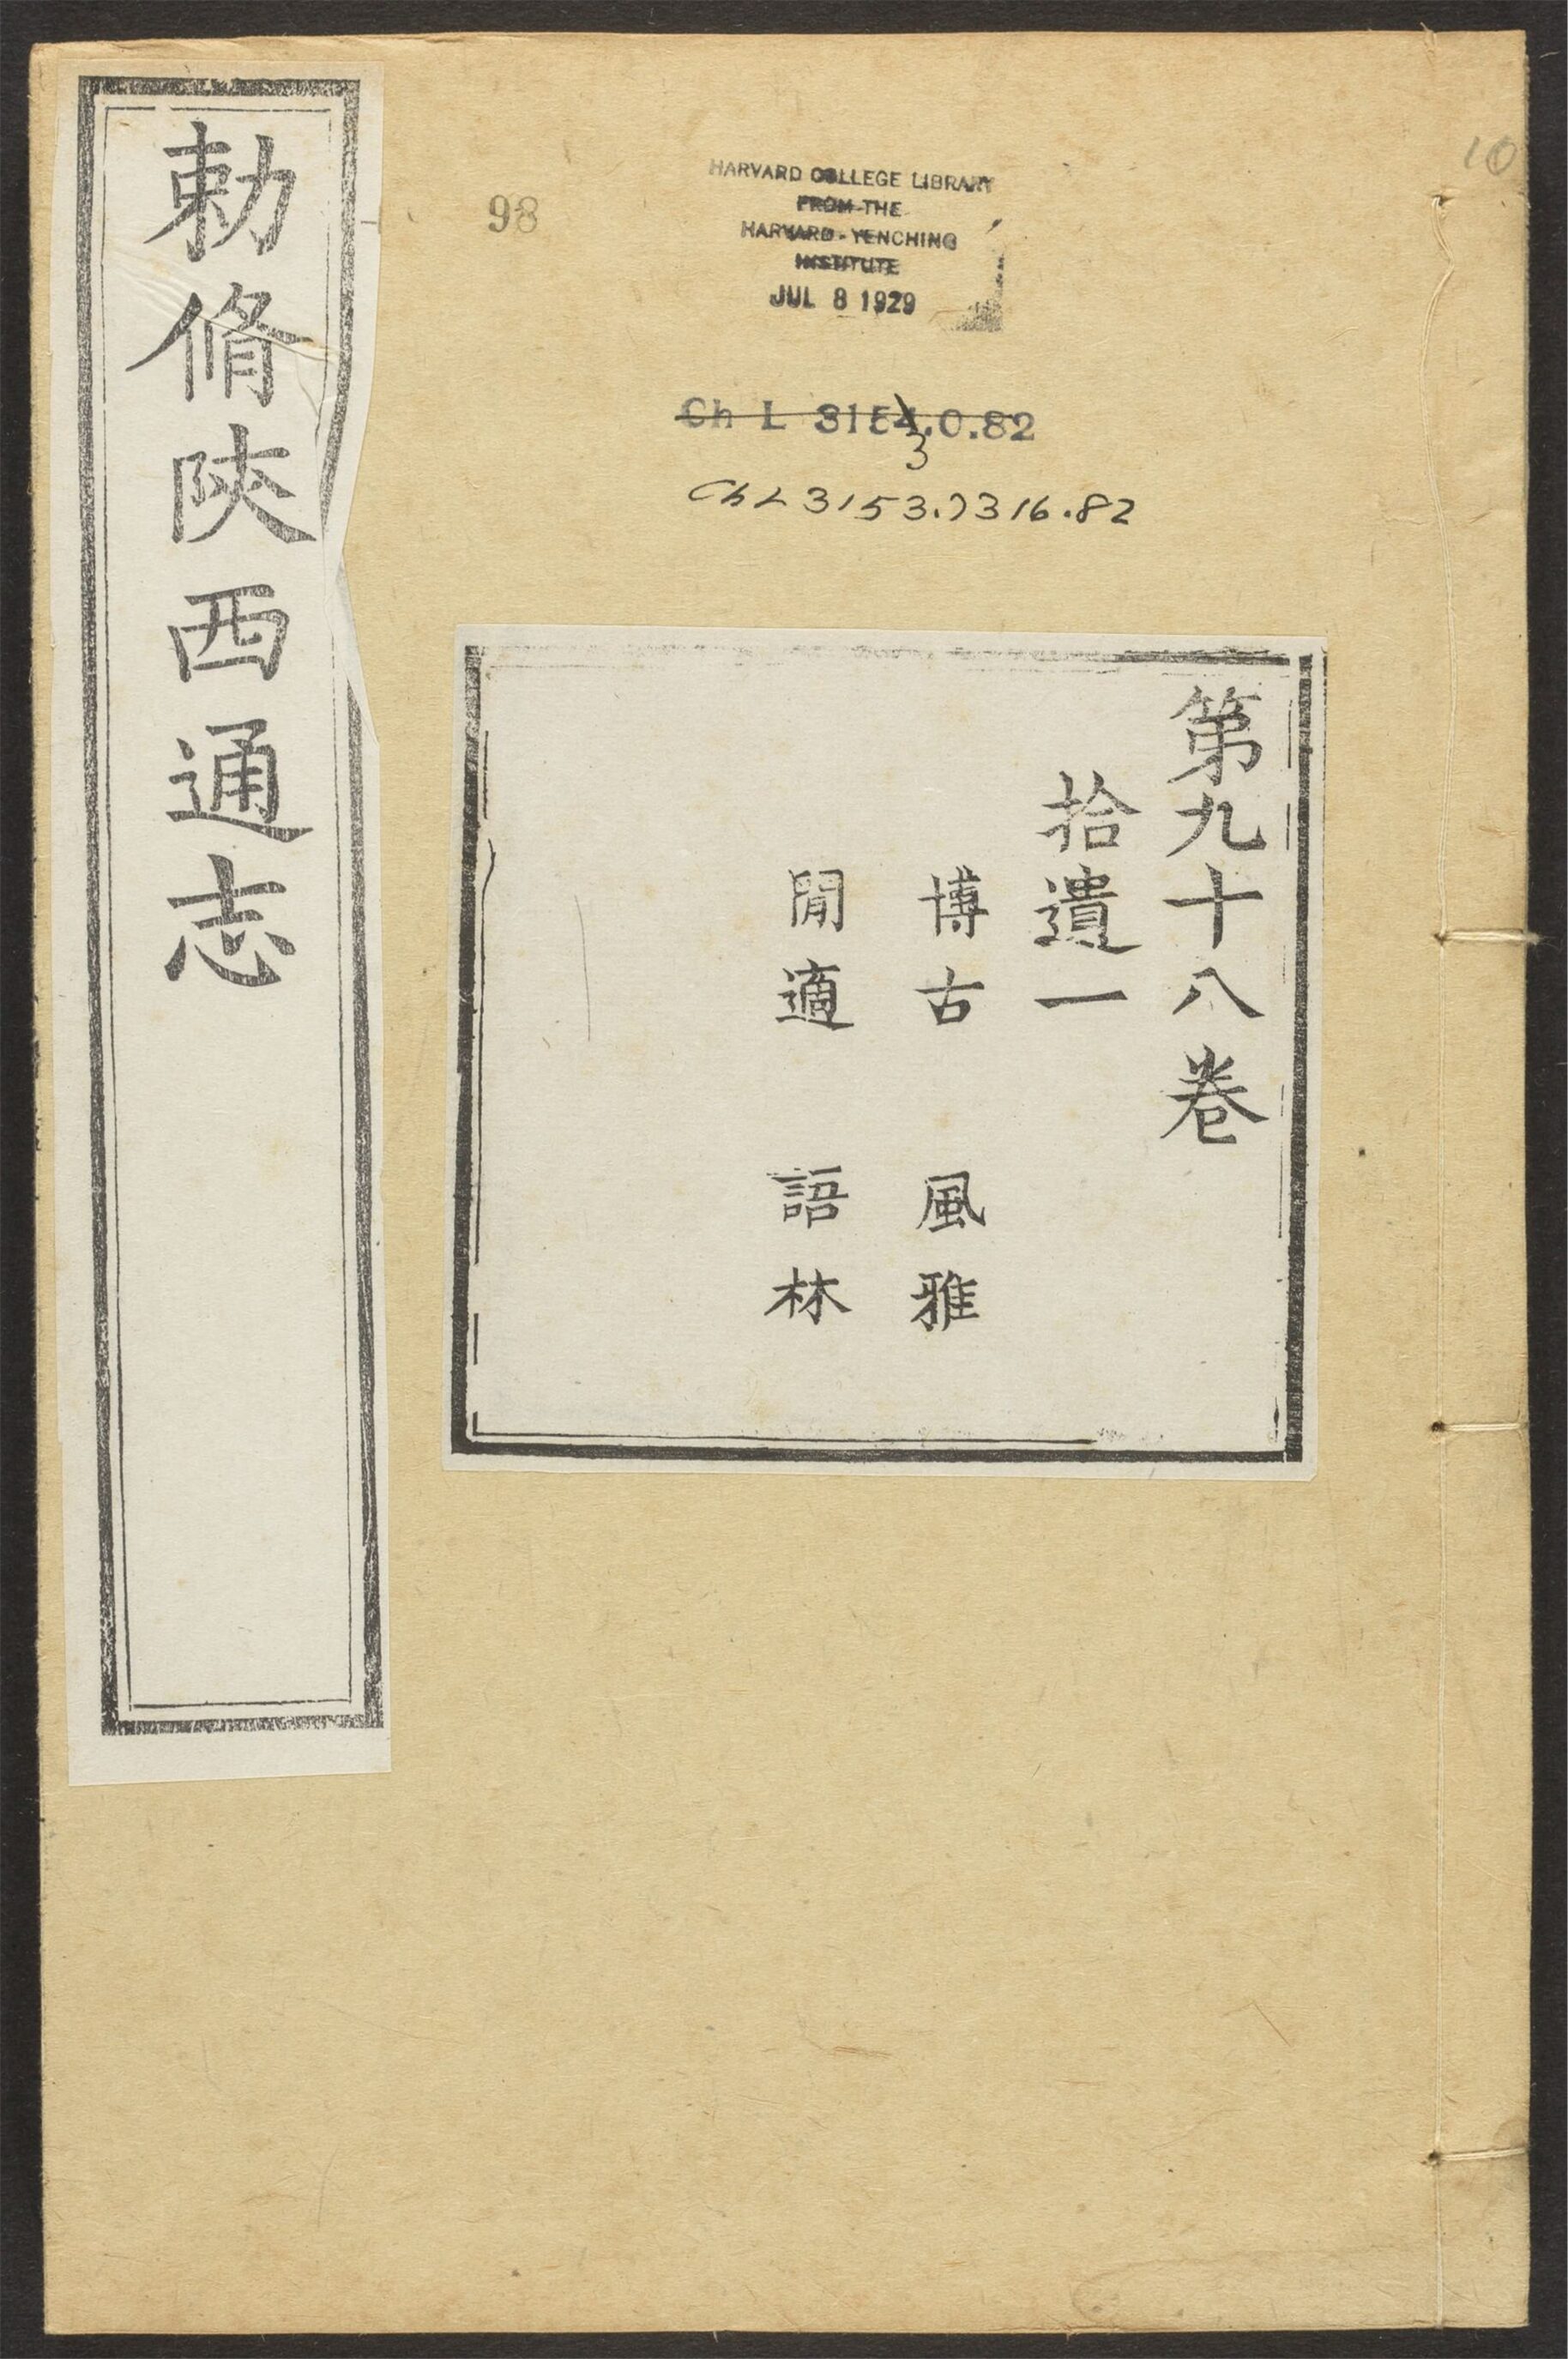 勅脩陝西通志
98
10
HARVARD COLLEGE LIBRARY
FROM THE
HARVARD-YENCHING
INSTITUTE
JUL 8 1929
Ch L 3154.0.82
3
Ch L 3153.7316.82
第九十八卷
拾遺一
博古 風雅
閒適 語林